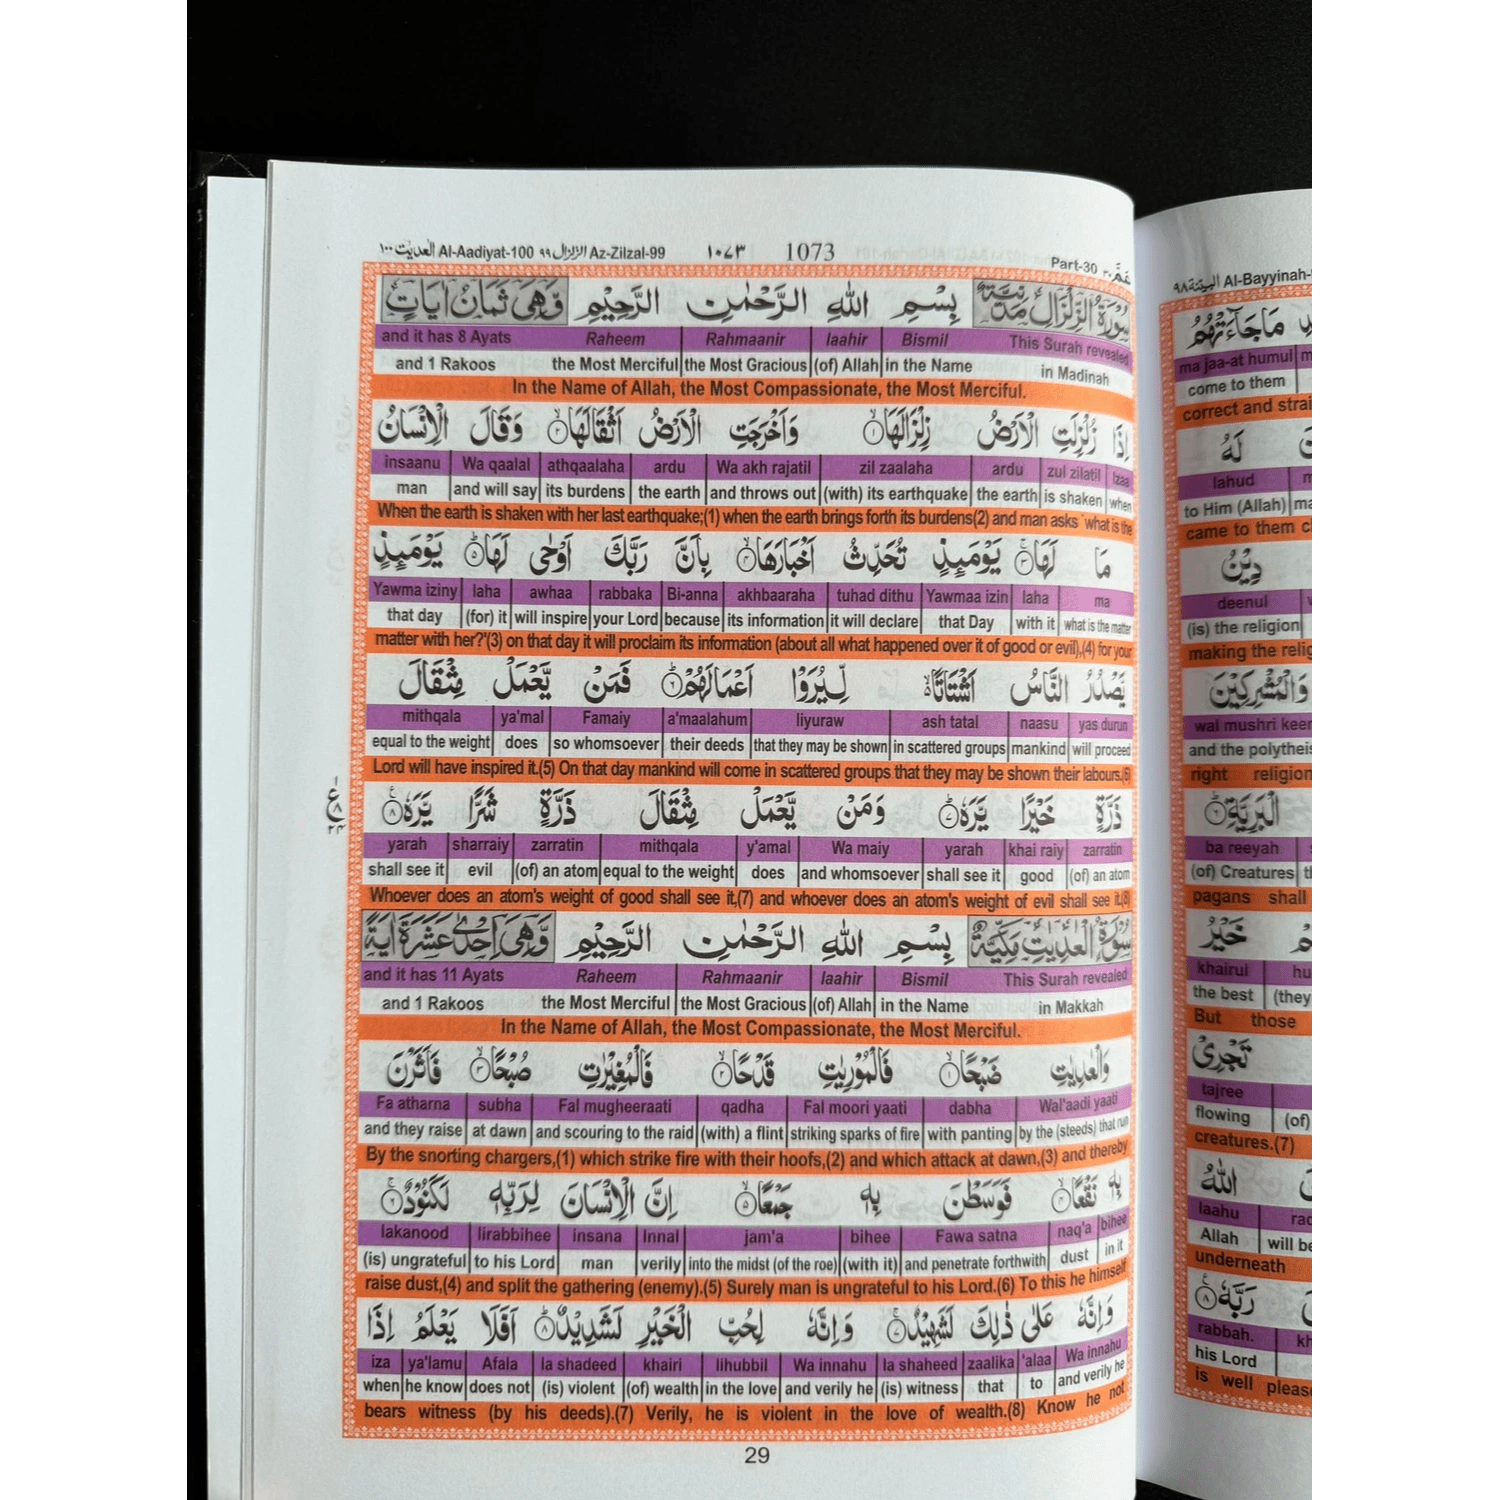 العديت ١٠٠ Al-Aadiyat-100 الزلزال ٩٩ Az-Zilzal-99 ١٠٧٣ 1073 Part-30 عم ٣٠
سُوْرَةُ الزِّلْزَالِ مَدَنِيَّةٌ بِسْمِ اللهِ الرَّحْمٰنِ الرَّحِيْمِ وَّهِىَ ثَمَانُ اٰيَاتٍ
and it has 8 Ayats Raheem Rahmaanir laahir Bismil This Surah revealed
and 1 Rakoos the Most Merciful the Most Gracious (of) Allah in the Name in Madinah
In the Name of Allah, the Most Compassionate, the Most Merciful.
اِذَا زُلْزِلَتِ الْاَرْضُ زِلْزَالَهَا ۙ١ وَاَخْرَجَتِ الْاَرْضُ اَثْقَالَهَا ۙ٢ وَقَالَ الْاِنْسَانُ
insaanu Wa qaalal athqaalaha ardu Wa akh rajatil zil zaalaha ardu zul zilatil Izaa
man and will say its burdens the earth and throws out (with) its earthquake the earth is shaken when
When the earth is shaken with her last earthquake;(1) when the earth brings forth its burdens(2) and man asks 'what is the
مَا لَهَا ۚ٣ يَوْمَىِٕذٍ تُحَدِّثُ اَخْبَارَهَا ۙ٤ بِاَنَّ رَبَّكَ اَوْحٰى لَهَا ؕ٥ يَوْمَىِٕذٍ
Yawma iziny laha awhaa rabbaka Bi-anna akhbaaraha tuhad dithu Yawmaa izin laha ma
that day (for) it will inspire your Lord because its information it will declare that Day with it what is the matter
matter with her?'(3) on that day it will proclaim its information (about all what happened over it of good or evil),(4) for your
يَّصْدُرُ النَّاسُ اَشْتَاتًا ۙ لِّيُرَوْا اَعْمَالَهُمْ ؕ٦ فَمَنْ يَّعْمَلْ مِثْقَالَ
mithqala ya'mal Famaiy a'maalahum liyuraw ash tatal naasu yas durun
equal to the weight does so whomsoever their deeds that they may be shown in scattered groups mankind will proceed
Lord will have inspired it.(5) On that day mankind will come in scattered groups that they may be shown their labours.(6)
ذَرَّةٍ خَيْرًا يَّرَهٗ ؕ٧ وَمَنْ يَّعْمَلْ مِثْقَالَ ذَرَّةٍ شَرًّا يَّرَهٗ ۧ٨
yarah sharraiy zarratin mithqala y'amal Wa maiy yarah khai raiy zarratin
shall see it evil (of) an atom equal to the weight does and whomsoever shall see it good (of) an atom
Whoever does an atom's weight of good shall see it,(7) and whoever does an atom's weight of evil shall see it.(8)
سُوْرَةُ الْعٰدِيٰتِ مَكِّيَّةٌ بِسْمِ اللهِ الرَّحْمٰنِ الرَّحِيْمِ وَّهِىَ اِحْدٰى عَشَرَةَ اٰيَةً
and it has 11 Ayats Raheem Rahmaanir laahir Bismil This Surah revealed
and 1 Rakoos the Most Merciful the Most Gracious (of) Allah in the Name in Makkah
In the Name of Allah, the Most Compassionate, the Most Merciful.
وَالْعٰدِيٰتِ ضَبْحًا ۙ١ فَالْمُوْرِيٰتِ قَدْحًا ۙ٢ فَالْمُغِيْرٰتِ صُبْحًا ۙ٣ فَاَثَرْنَ
Fa atharna subha Fal mugheeraati qadha Fal moori yaati dabha Wal'aadi yaati
and they raise at dawn and scouring to the raid (with) a flint striking sparks of fire with panting by the (steeds) that run
By the snorting chargers,(1) which strike fire with their hoofs,(2) and which attack at dawn,(3) and thereby
بِهٖ نَقْعًا ۙ٤ فَوَسَطْنَ بِهٖ جَمْعًا ۙ٥ اِنَّ الْاِنْسَانَ لِرَبِّهٖ لَكَنُوْدٌ ۚ٦
lakanood lirabbihee insana Innal jam'a bihee Fawa satna naq'a bihee
(is) ungrateful to his Lord man verily into the midst (of the roe) (with it) and penetrate forthwith dust in it
raise dust,(4) and split the gathering (enemy).(5) Surely man is ungrateful to his Lord.(6) To this he himself
وَاِنَّهٗ عَلٰى ذٰلِكَ لَشَهِيْدٌ ۚ٧ وَاِنَّهٗ لِحُبِّ الْخَيْرِ لَشَدِيْدٌ ؕ٨ اَفَلَا يَعْلَمُ اِذَا
iza ya'lamu Afala la shadeed khairi lihubbil Wa innahu la shaheed zaalika 'alaa Wa innahu
when he know does not (is) violent (of) wealth in the love and verily he (is) witness that to and verily he
bears witness (by his deeds).(7) Verily, he is violent in the love of wealth.(8) Know he not
29
البينة ٩٨ Al-Bayyinah-
مَا جَآءَتْهُمُ
ma jaa-at humul
come to them
correct and strai
لَهُ
lahud
to Him (Allah)
came to them
دِيْنُ
deenul
(is) the religion
making the relig
وَالْمُشْرِكِيْنَ
wal mushri keen
and the polytheis
right religion
الْبَرِيَّةِ ؕ٦
ba reeyah
(of) Creatures
pagans shall
خَيْرُ
khairul
the best (they
But those
تَجْرِىْ
tajree
flowing (of)
creatures.(7)
اللّٰهُ
laahu
Allah will be
underneath
رَبَّهٗ ۧ٨
rabbah.
his Lord
is well please